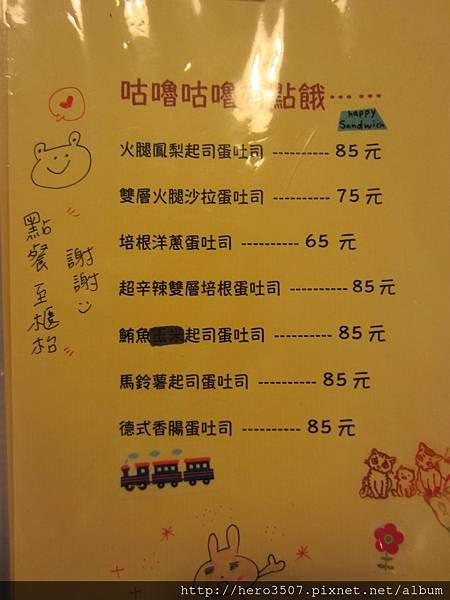 咕嚕咕嚕有點餓……
happy
Sandwich
火腿鳳梨起司蛋吐司 ---------- 85元
雙層火腿沙拉蛋吐司 ---------- 75元
培根洋蔥蛋吐司 ---------- 65 元
超辛辣雙層培根蛋吐司 ---------- 85元
鮪魚玉米起司蛋吐司 ---------- 85元
馬鈴薯起司蛋吐司 ---------- 85元
德式香腸蛋吐司 ---------- 85元
點餐至櫃枱
謝謝
http://hero3507.pixnet.net/album